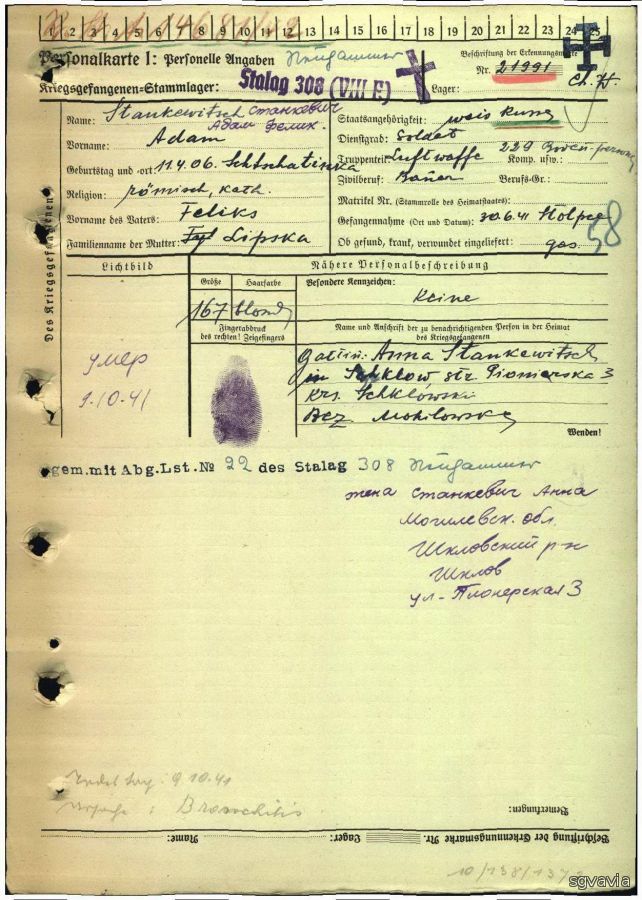 1 2 3 4 5 6 7 8 9 10 11 12 13 14 15 16 17 18 19 20 21 22 23 24 25
Personalkarte I: Personelle Angaben Neuhammer
Kriegsgefangenen-Stammlager: Stalag 308 (VIII E)
Beschriftung der Erkennungsmarke
Nr. 21991
Lager:
Des Kriegsgefangenen
Name: Stankewitsch Станкевич
Адам Феликс.
Vorname: Adam
Geburtstag und -ort: 11.4.06. Schtschatinka
Religion: römisch, kath.
Vorname des Vaters: Feliks
Familienname der Mutter: Lipska
Staatsangehörigkeit: weis
Dienstgrad: Soldat
Truppenteil: Luftwaffe Komp. usw.: 229
Zivilberuf: Bauer Berufs-Gr.:
Matrikel Nr. (Stammrolle des Heimatstaates):
Gefangennahme (Ort und Datum): 30.6.41 Stolpce
Ob gesund, krank, verwundet eingeliefert: ges.
58
Lichtbild
Nähere Personalbeschreibung
Größe Haarfarbe
167 blond
Besondere Kennzeichen:
Keine
Fingerabdruck
des rechten! Zeigefingers
Name und Anschrift der zu benachrichtigenden Person in der Heimat
des Kriegsgefangenen
умер
9.10.41
Gattin: Anna Stankewitsch
in Schklow str. Pionierska 3
Krs. Schklówski
Bez. Mohilowska
Wenden!
gem. mit Abg.Lst.№ 22 des Stalag 308 Neuhammer
жена Станкевич Анна
Могилевск. обл.
Шкловский р-н
Шклов
ул- Пионерская 3
9.10.41
Bemerkungen:
Beschriftung der Erkennungsmarke Nr.
Lager:
Name:
sgvavia